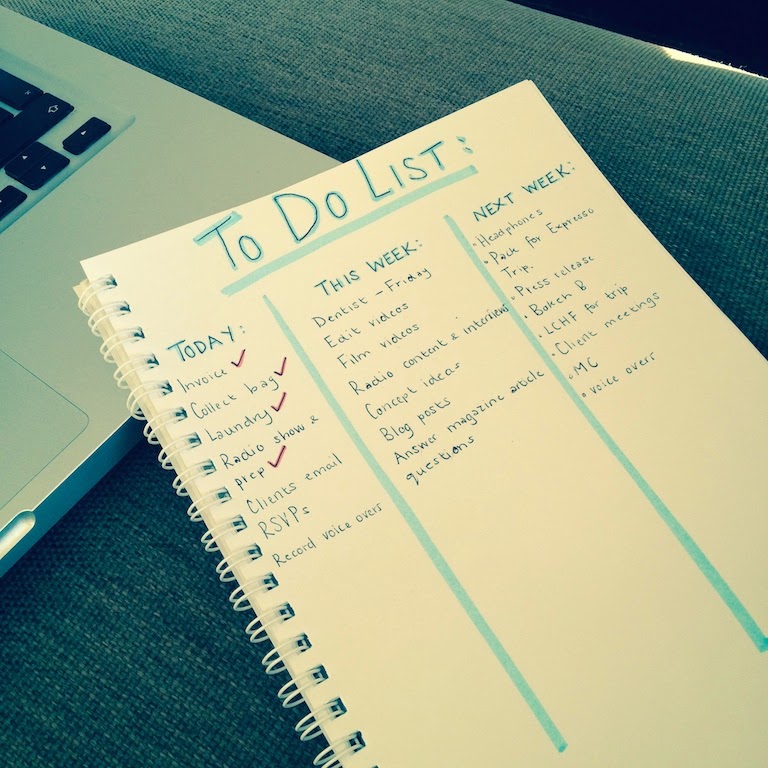 To Do List:
Today:
Invoice
Collect bag
Laundry
Radio show &
prep
Clients email
RSVPs
Record voice overs
This Week:
Dentist - Friday
Edit videos
Film videos
Radio content & interviews
Concept ideas
Blog posts
Answer magazine article
questions
Next Week:
• Headphones
• Pack for Expresso
Trip.
• Press release
• B
• LCHF for trip
• Client meetings
• MC
• voice overs